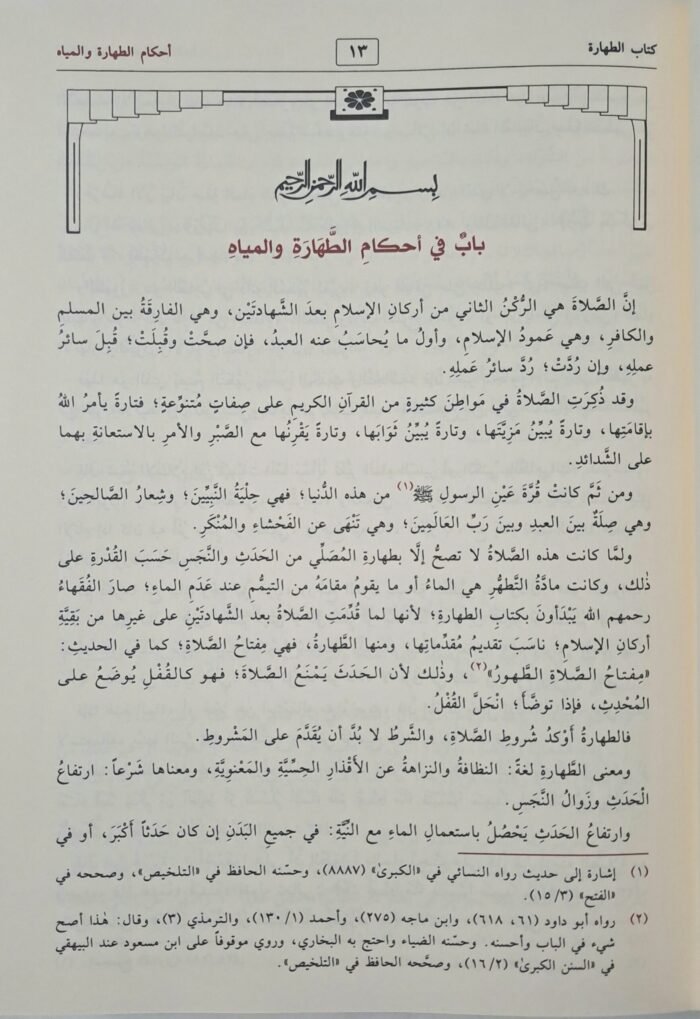 كتاب الطهارة
١٣
أحكام الطهارة والمياه
بِسْمِ اللهِ الرَّحْمَنِ الرَّحِيمِ
بابٌ في أحكامِ الطَّهَارَةِ والمياهِ
إنَّ الصَّلاةَ هي الرُّكْنُ الثاني من أركانِ الإسلامِ بعدَ الشَّهادتَيْنِ، وهي الفارِقَةُ بين المسلمِ
والكافرِ، وهي عَمودُ الإسلامِ، وأولُ ما يُحاسَبُ عنه العبدُ، فإن صحَّتْ وقُبِلَتْ؛ قُبِلَ سائرُ
عملِهِ، وإن رُدَّتْ؛ رُدَّ سائرُ عَملِهِ.
وقد ذُكِرَتِ الصَّلاةُ في مَواطِنَ كثيرةٍ من القرآنِ الكريمِ على صِفاتٍ مُتنوِّعةٍ؛ فتارةً يأمرُ اللهُ
بإقامَتِها، وتارةً يُبيِّنُ مَزِيَّتَها، وتارةً يُبيِّنُ ثَوابَها، وتارةً يَقْرِنُها مع الصَّبْرِ والأمرِ بالاستعانةِ بهما
على الشَّدائدِ.
ومن ثَمَّ كانتْ قُرَّةَ عَيْنِ الرسولِ ﷺ(١) من هذه الدُّنيا؛ فهي حِلْيَةُ النَّبِيِّينَ؛ وشِعارُ الصَّالحِينَ؛
وهي صِلَةٌ بينَ العبدِ وبينَ رَبِّ العَالمِينَ؛ وهي تَنْهَى عن الفَحْشاءِ والمُنْكَرِ.
ولمَّا كانت هذه الصَّلاةُ لا تصحُّ إلَّا بطهارةِ المُصَلِّي من الحدَثِ والنَّجَسِ حَسَبَ القُدْرةِ على
ذٰلك، وكانت مادَّةُ التَّطهُّرِ هي الماءُ أو ما يقومُ مقامَهُ من التيمُّمِ عند عَدَمِ الماءِ؛ صارَ الفُقَهاءُ
رحمهم الله يَبْدَأونَ بكتابِ الطهارةِ؛ لأنها لما قُدِّمَتِ الصَّلاةُ بعدَ الشَّهادتَيْنِ على غيرِها من بَقِيَّةِ
أركانِ الإسلامِ؛ ناسَبَ تقديمُ مُقدِّماتِها، ومنها الطَّهارةُ، فهي مِفتاحُ الصَّلاةِ؛ كما في الحديثِ:
«مِفتاحُ الصَّلاةِ الطَّهورُ»(٢)، وذٰلك لأن الحَدَثَ يَمْنَعُ الصَّلاةَ؛ فهو كالقُفْلِ يُوضَعُ على
المُحْدِثِ، فإذا توضَّأَ؛ انْحَلَّ القُفْلُ.
فالطهارةُ أوْكَدُ شُروطِ الصَّلاةِ، والشَّرطُ لا بُدَّ أن يُقدَّمَ على المَشروطِ.
ومعنى الطَّهارةِ لغةً: النظافةُ والنزاهةُ عن الأقْذارِ الحِسِّيَّةِ والمَعْنَوِيَّةِ، ومعناها شَرْعاً: ارتفاعُ
الْحَدَثِ وزَوالُ النَّجَسِ.
وارتفاعُ الحَدَثِ يَحْصُلُ باستعمالِ الماءِ مع النِّيَّةِ: في جميعِ البَدَنِ إن كان حَدَثاً أكْبَرَ، أو في
(١) إشارة إلى حديث رواه النسائي في «الكبرىٰ» (٨٨٨٧)، وحسّنه الحافظ في «التلخيص»، وصححه في
«الفتح» (١٥/٣).
(٢) رواه أبو داود (٦١، ٦١٨)، وابن ماجه (٢٧٥)، وأحمد (١٣٠/١)، والترمذي (٣)، وقال: هٰذا أصح
شيء في الباب وأحسنه. وحسّنه الضياء واحتج به البخاري، وروي موقوفاً على ابن مسعود عند البيهقي
في «السنن الكبرىٰ» (١٦/٢)، وصحَّحه الحافظ في «التلخيص».